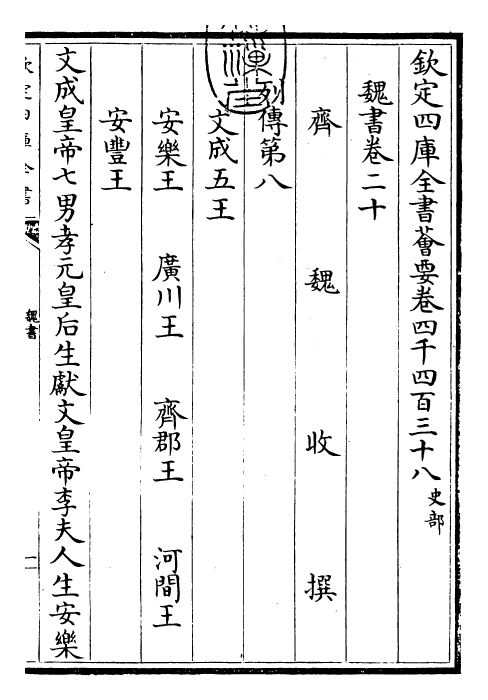 欽定四庫全書薈要卷四千四百三十八 史部
魏書卷二十
齊 魏 收 撰
列傳第八
文成五王
安樂王 廣川王 齊郡王 河間王
安豐王
文成皇帝七男孝元皇后生獻文皇帝李夫人生安樂
欽定四庫全書
魏書
一